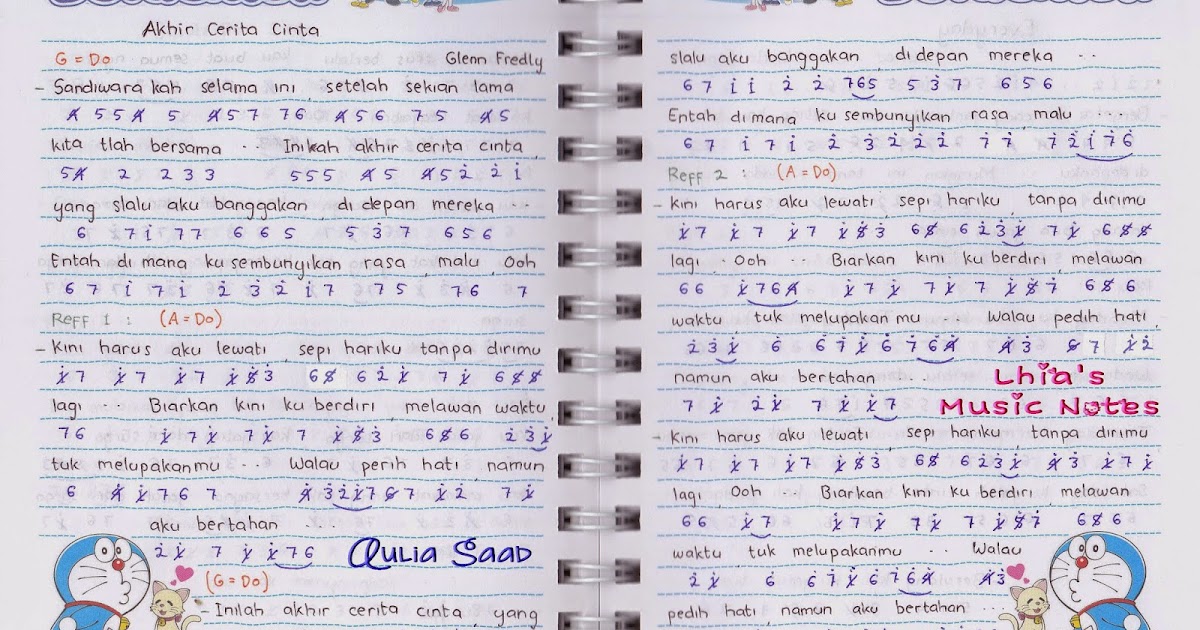 Akhir Cerita Cinta
G = Do Glenn Fredly
- Sandiwara kah selama ini, setelah sekian lama
4 5 5 4 5 4 5 7 7 6 4 5 6 7 5 4 5
kita tlah bersama .. Inikah akhir cerita cinta,
5 4 2 2 3 3 5 5 5 4 5 4 5 2 2 1
yang slalu aku banggakan, di depan mereka ..
6 7 1 7 7 6 6 5 5 3 7 6 5 6
Entah di mana ku sembunyikan rasa malu, Ooh
6 7 1 7 1 2 3 2 1 7 7 5 7 6 7
Reff 1 : (A = Do)
- Kini harus aku lewati, sepi hariku tanpa dirimu
1 7 1 7 1 7 1 5 3 6 5 6 2 1 7 1 6 5 5
lagi .. Biarkan kini ku berdiri melawan waktu,
7 6 1 7 1 7 1 7 1 5 3 6 5 6 2 3 1
tuk melupakanmu .. Walau perih hati, namun
6 4 1 7 6 7 4 3 2 1 7 6 7 1 2 7 1
aku bertahan ..
2 1 7 1 1 7 6 Aulia Saad
(G = Do)
- Inilah akhir cerita cinta, yang
slalu aku banggakan, di depan mereka ..
6 7 1 1 2 2 7 6 5 5 3 7 6 5 6
Entah di mana ku sembunyikan rasa, malu ..
6 7 1 7 1 2 3 2 2 2 7 7 7 2 1 7 6
Reff 2 : (A = Do)
- Kini harus aku lewati, sepi hariku, tanpa dirimu
1 7 1 7 1 7 1 5 3 6 5 6 2 3 1 7 1 6 5 5
lagi .. Ooh .. Biarkan kini ku berdiri, melawan
6 6 1 7 6 4 1 7 1 7 1 7 1 5 7 6 5 6
waktu tuk melupakan mu .. Walau pedih hati,
2 3 1 6 6 7 1 6 7 6 4 4 3 6 7 1 2
namun aku bertahan ..
7 1 2 1 7 1 1 7
Lhia's
Music Notes
- Kini harus aku lewati, sepi hariku tanpa dirimu
1 7 1 7 1 7 1 5 3 6 5 6 2 3 1 4 3 1 7 1
lagi, Ooh .. Biarkan kini ku berdiri, melawan
6 6 1 7 1 7 1 7 1 7 1 5 7 6 5 6
waktu tuk melupakanmu .. Walau
2 1 6 6 7 1 6 7 6 4 4 3
pedih hati, namun aku bertahan ..